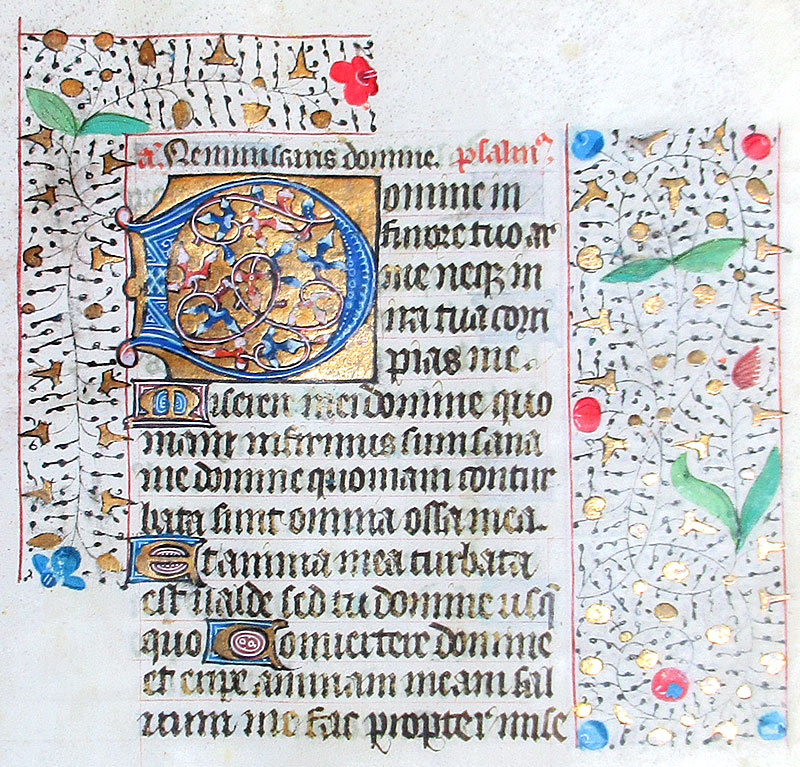 a. Neminiscaris domine. psalmꝰ.
Domine in
furore tuo ar
me neqꝫ in
ira tua corri
pias me.
Miserere mei domine quo
niam infirmus sum sana
me domine quoniam contur
bata sunt omnia ossa mea.
Et anima mea turbata
est ualde sed tu domine usq̃
quo Conuertere domine
et eripe animam meam sal
uum me fac propter mise